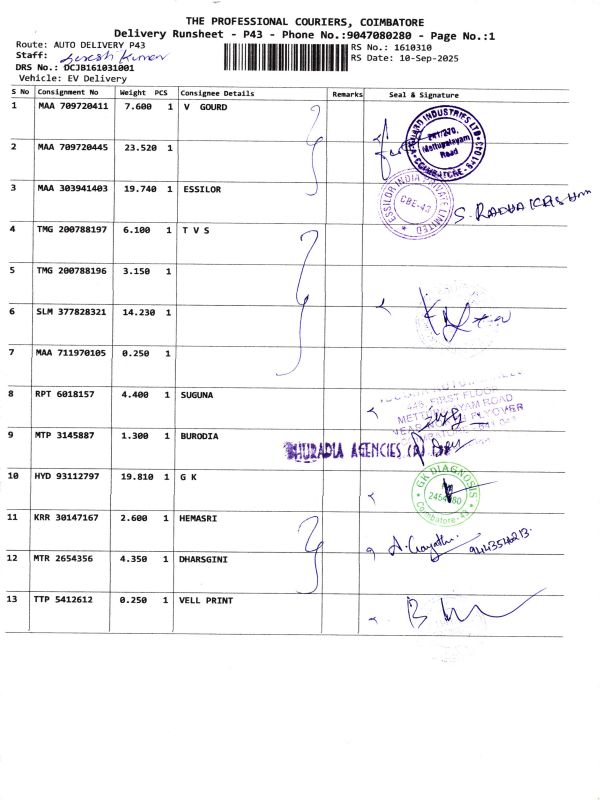 THE PROFESSIONAL COURIERS, COIMBATORE
Delivery Runsheet - P43 - Phone No.:9047080280 - Page No.:1
Route: AUTO DELIVERY P43 RS No.: 1610310
Staff: Suresh Kumar RS Date: 10-Sep-2025
DRS No.: DCJB161031001
Vehicle: EV Delivery
S No Consignment No Weight PCS Consignee Details Remarks Seal & Signature
1 MAA 709720411 7.600 1 V GOURD
2 MAA 709720445 23.520 1
INDUSTRIES LTD
Mettupalayam
Road
COIMBATORE - 641 043
3 MAA 303941403 19.740 1 ESSILOR
ESSILOR INDIA PRIVATE LIMITED
CBE-43
S. RADHA KRISHNAN
4 TMG 200788197 6.100 1 T V S
5 TMG 200788196 3.150 1
6 SLM 377828321 14.230 1
7 MAA 711970105 0.250 1
8 RPT 6018157 4.400 1 SUGUNA
FIRST FLOOR
METTUPALAYAM ROAD
9 MTP 3145887 1.300 1 BURODIA
BHURADIA AGENCIES (P)
10 HYD 93112797 19.810 1 G K
GK DIAGNOSIS
Coimbatore - 43
11 KRR 30147167 2.600 1 HEMASRI
A. Gayathri.
12 MTR 2654356 4.350 1 DHARSGINI
13 TTP 5412612 0.250 1 VELL PRINT